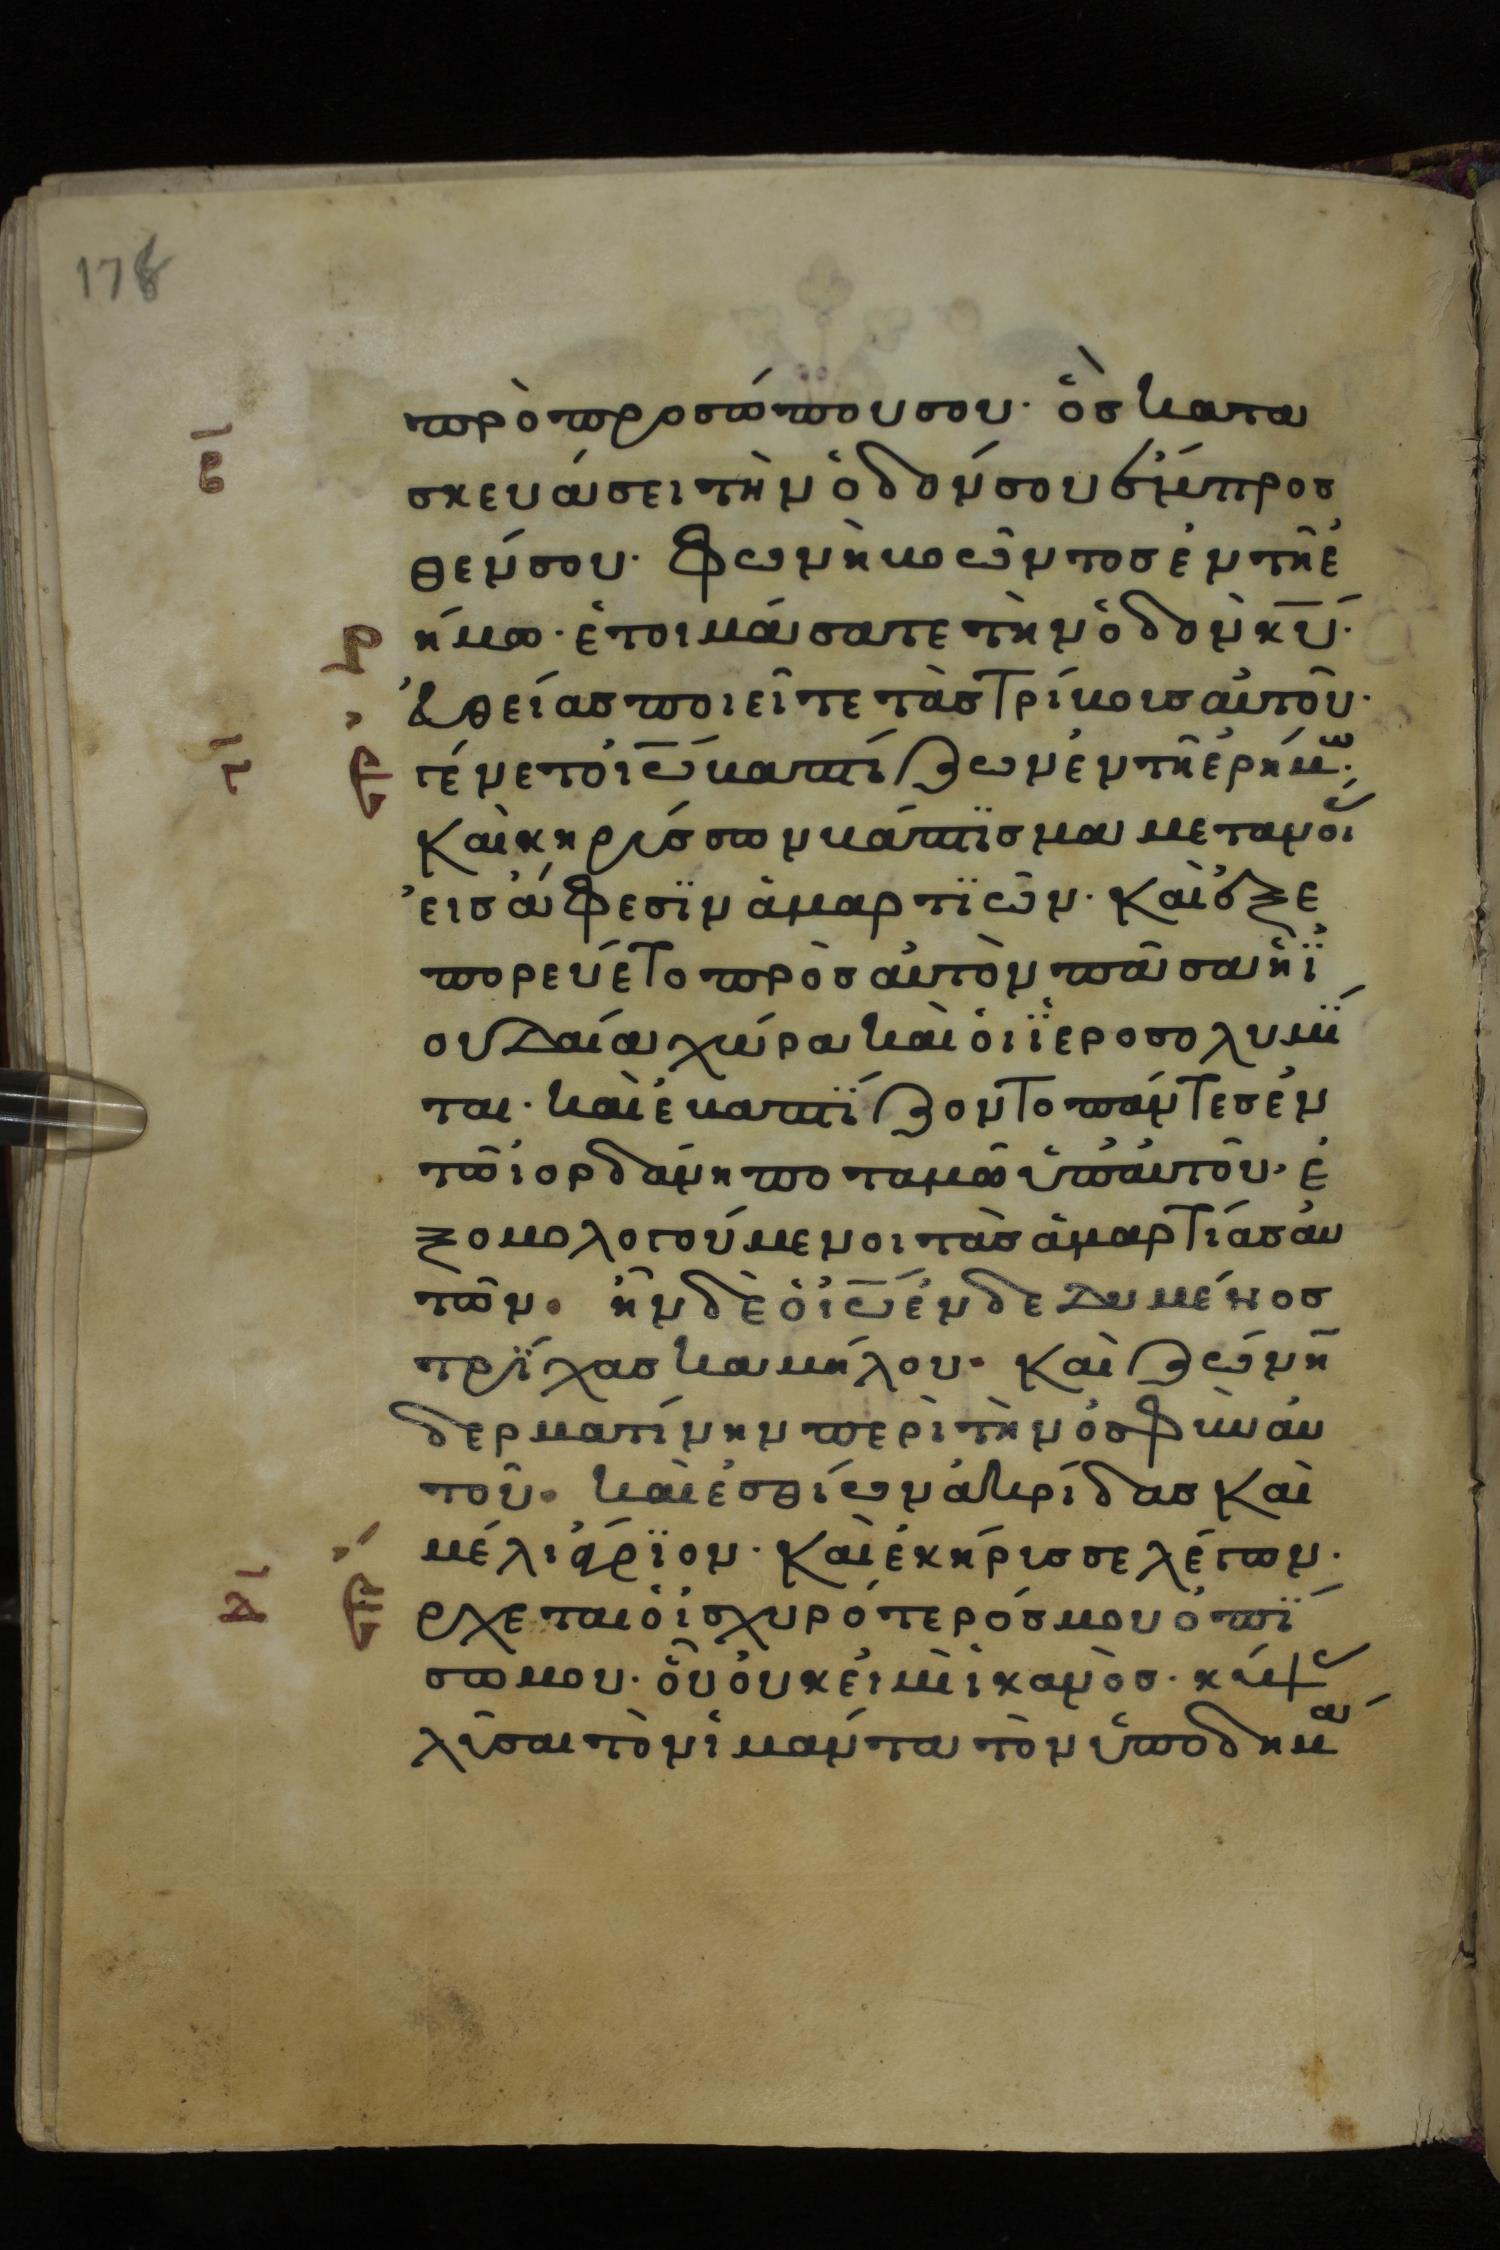 178
πρὸ προσώπου σου· ὃσ κατα
β
σκευάσει τὴν ὁδόν σου ἔμπροσ
θέν σου· Φωνὴ βοῶντοσ ἐν τῆ ἐ
ρήμω· ἑτοιμάσατε τὴν ὁδὸν κ̅υ̅·
ἐυθείασ ποιεῖτε τὰσ τρίβουσ ἀυτοῦ·
γ
Ἐ
γένετο ἰ̅ω̅ βαπτίζων ἐν τῆ ἐρήμω·
Καὶ κηρύσσων βάπτϊσμα μετανοί
εισ ἄφεσϊν ἁμαρτϊῶν· Καὶ ἐξε
πορεύετο πρὸσ ἀυτὸν πᾶσα ἡ ϊ
ουδαία χώρα καὶ ὁι ϊεροσολυμϊ
ται· καὶ ἐβαπτΐζοντο πάντεσ ἐν
τῶ ἰορδάνη ποταμῶ ὑπ' ἀυτοῦ· ἐ
ξομολογούμενοι τὰσ ἁμαρτίασ ἀυ
τῶν· ἦν δὲ ὁ ἰ̅ω̅ ἐνδεδυμένοσ
τρΐχασ καμήλου· Καὶ ζώνη
δερματίνην περὶ τὴν ὀσφὺν ἀυ
τοῦ· καὶ ἐσθίων ἀκρίδασ Καὶ
μέλι ἄγρϊον· Καὶ ἐκήρυσσε λέγων·
δ
Ἔ
ρχεται ὁ ἰσχυρότερόσ μου ὀπϊ
σω μου· οὗ ὀυκ ἐιμὶ ἱκανὸσ· κύψ
λῦσαι τὸν ἱμάντα τὸν ὑποδημά